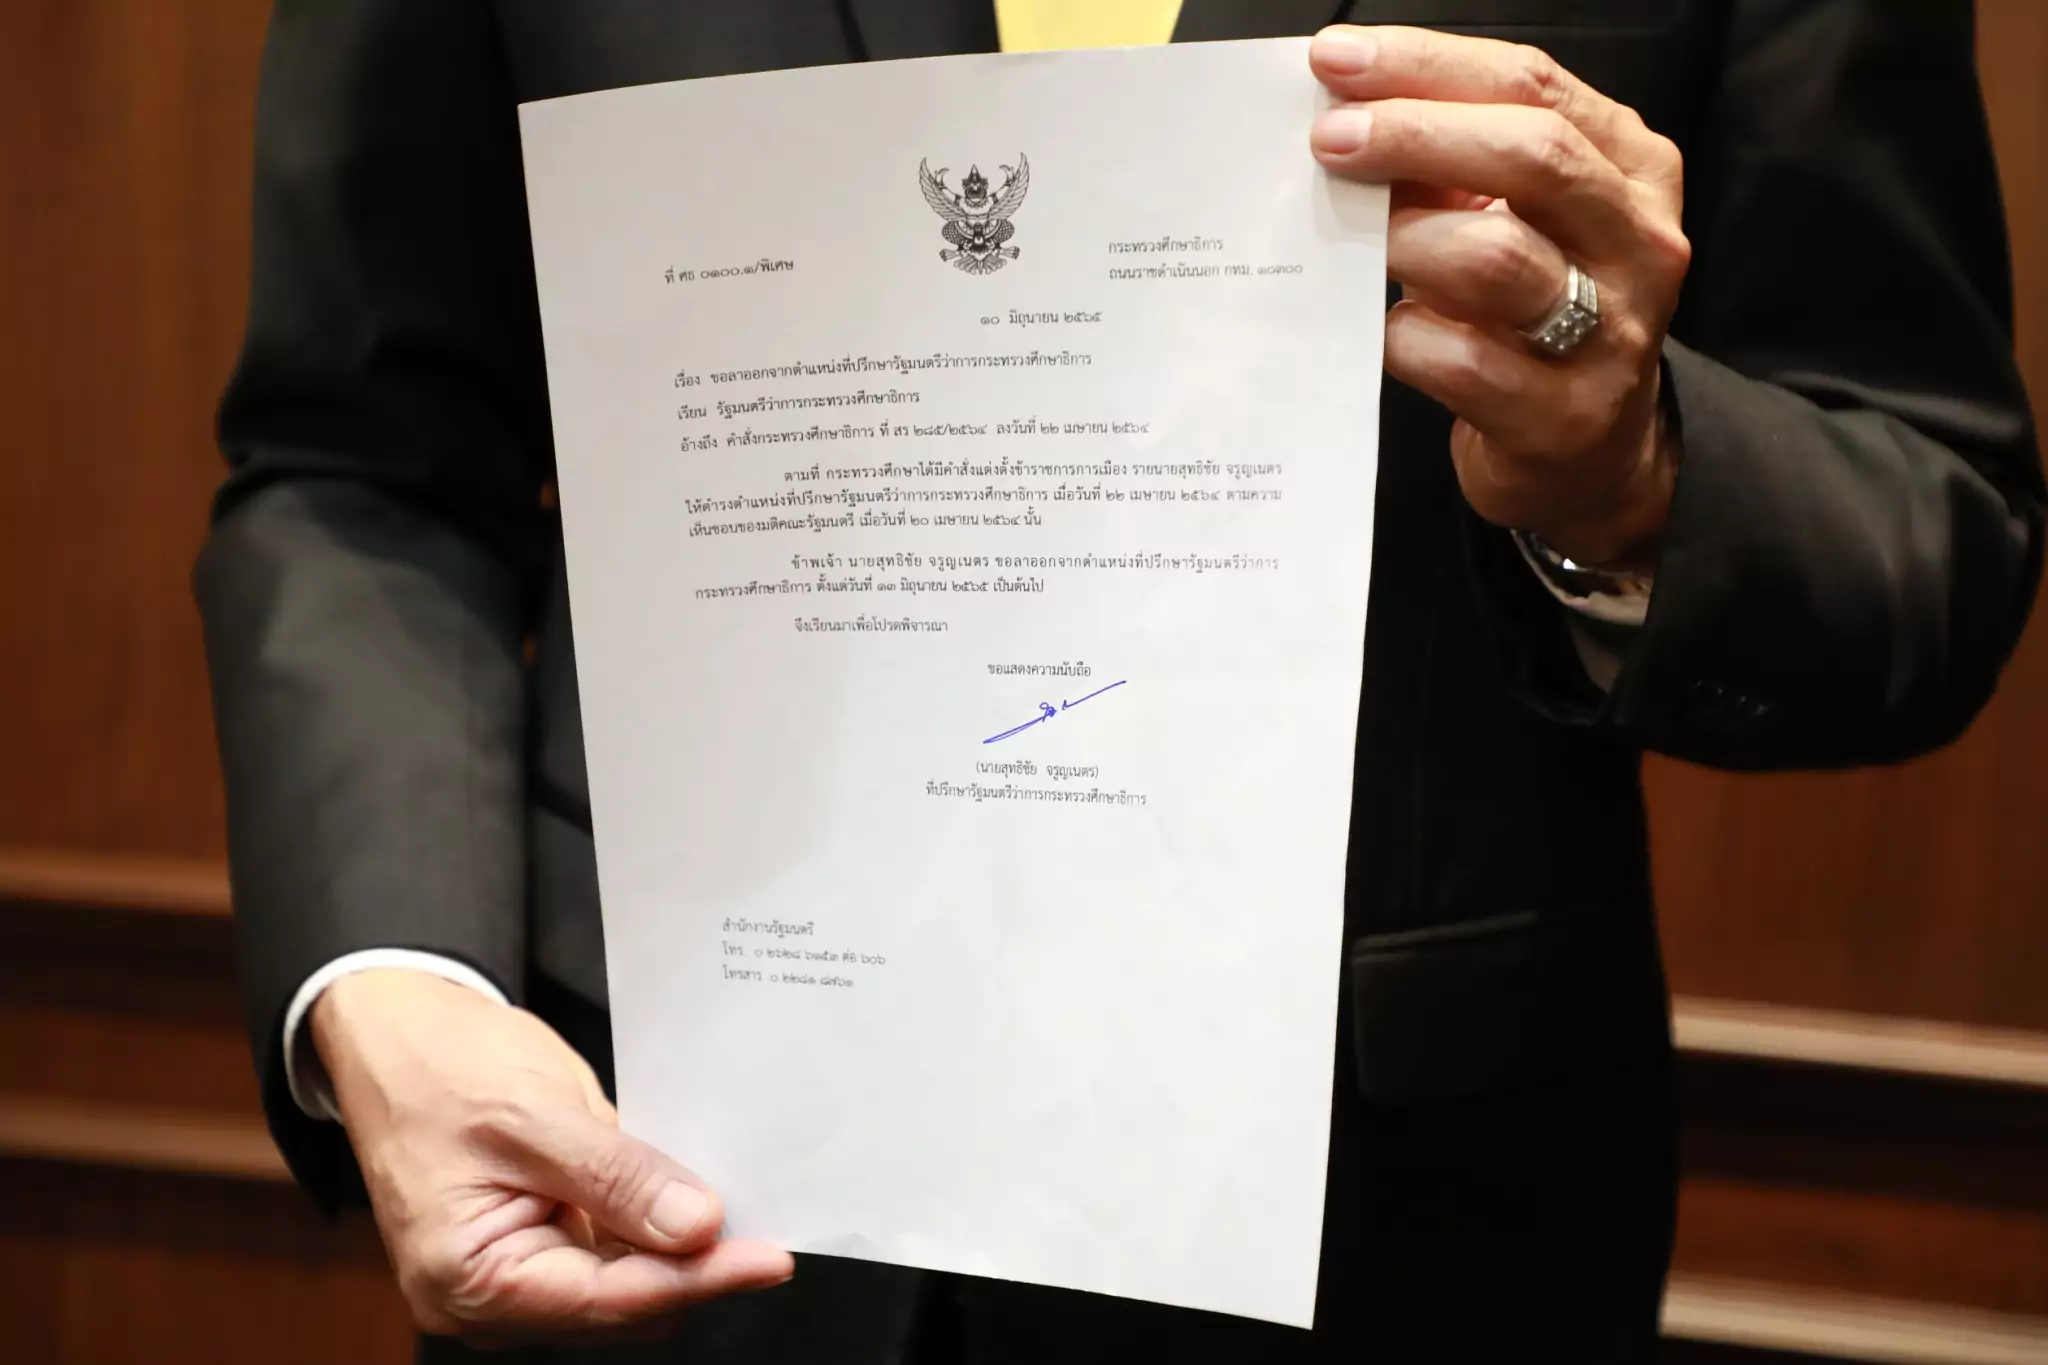 ที่ ศธ ๐๑๐๐.๑/พิเศษ
กระทรวงศึกษาธิการ
ถนนราชดำเนินนอก กทม. ๑๐๓๐๐
๑๐ มิถุนายน ๒๕๖๕
เรื่อง ขอลาออกจากตำแหน่งที่ปรึกษารัฐมนตรีว่าการกระทรวงศึกษาธิการ
เรียน รัฐมนตรีว่าการกระทรวงศึกษาธิการ
อ้างถึง คำสั่งกระทรวงศึกษาธิการ ที่ สร ๒๘๕/๒๕๖๔ ลงวันที่ ๒๒ เมษายน ๒๕๖๔
ตามที่ กระทรวงศึกษาได้มีคำสั่งแต่งตั้งข้าราชการการเมือง รายนายสุทธิชัย จรูญเนตร
ให้ดำรงตำแหน่งที่ปรึกษารัฐมนตรีว่าการกระทรวงศึกษาธิการ เมื่อวันที่ ๒๒ เมษายน ๒๕๖๔ ตามความ
เห็นชอบของมติคณะรัฐมนตรี เมื่อวันที่ ๒๐ เมษายน ๒๕๖๔ นั้น
ข้าพเจ้า นายสุทธิชัย จรูญเนตร ขอลาออกจากตำแหน่งที่ปรึกษารัฐมนตรีว่าการ
กระทรวงศึกษาธิการ ตั้งแต่วันที่ ๑๓ มิถุนายน ๒๕๖๕ เป็นต้นไป
จึงเรียนมาเพื่อโปรดพิจารณา
ขอแสดงความนับถือ
(นายสุทธิชัย จรูญเนตร)
ที่ปรึกษารัฐมนตรีว่าการกระทรวงศึกษาธิการ
สำนักงานรัฐมนตรี
โทร. ๐ ๒๖๒๘ ๖๑๕๓ ต่อ ๖๐๖
โทรสาร ๐ ๒๒๘๑ ๘๗๖๑